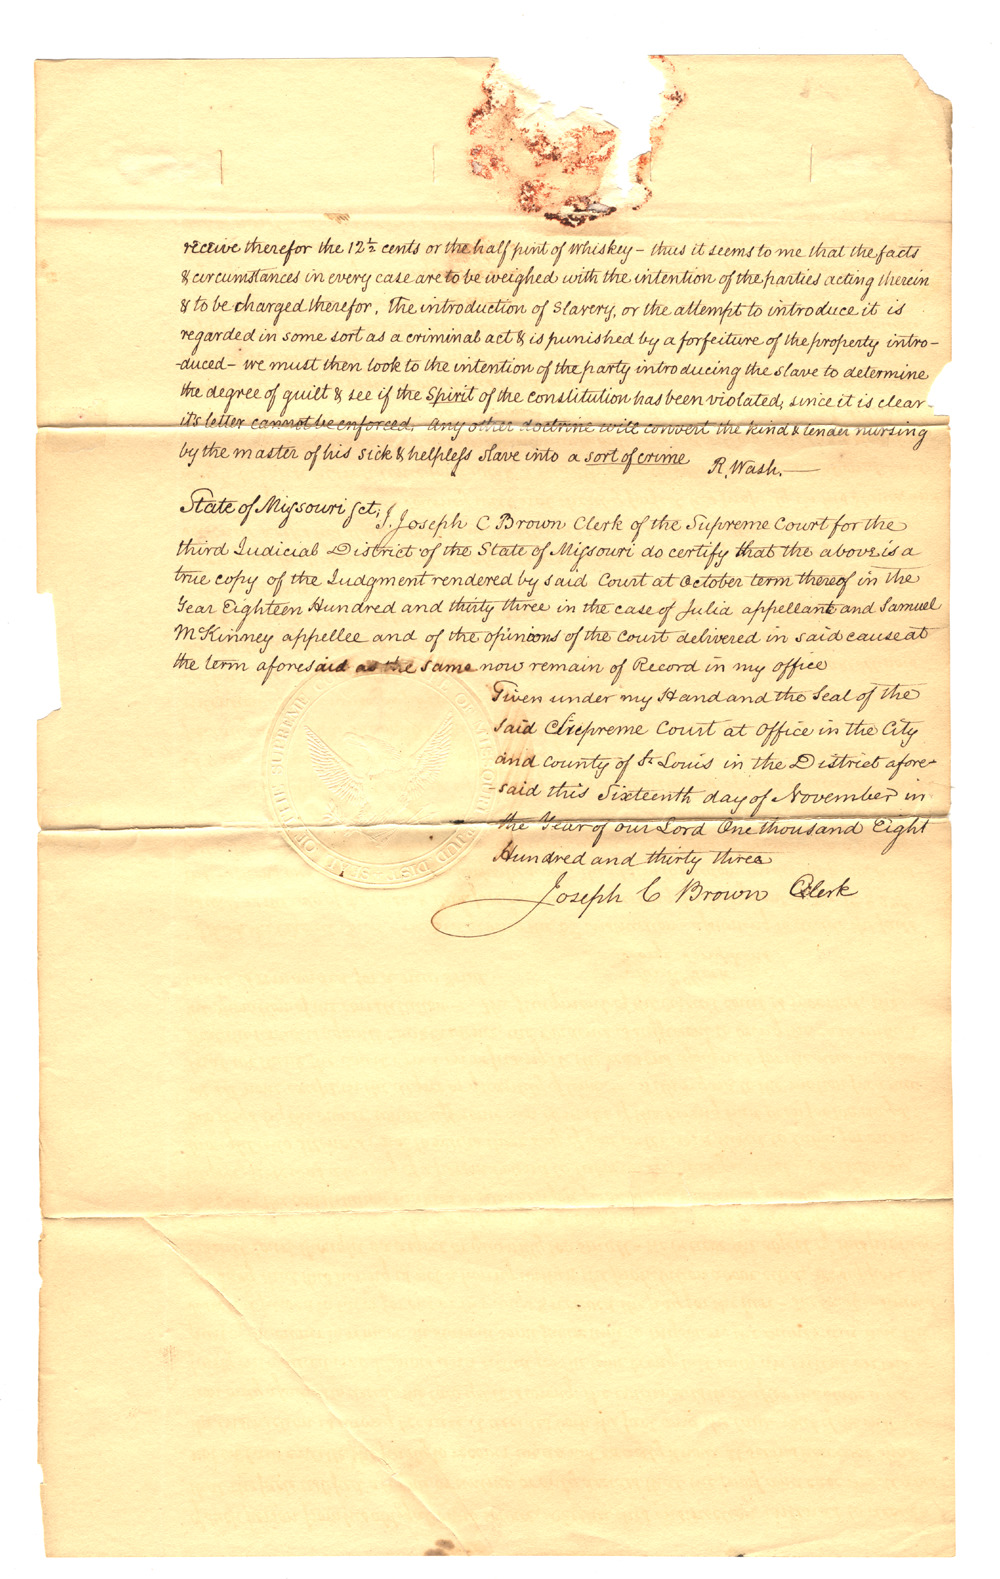 receive therefor the 12½ cents or the half pint of Whiskey – thus it seems to me that the facts
& circumstances in every case are to be weighed with the intention of the parties acting therein
& to be charged therefor. The introduction of Slavery, or the attempt to introduce it is
regarded in some sort as a criminal act & is punished by a forfeiture of the property intro-
-duced – we must then look to the intention of the party introducing the slave to determine
the degree of guilt & see if the Spirit of the constitution has been violated, since it is clear
it's letter cannot be enforced. Any other doctrine will convert the kind & tender nursing
by the master of his sick & helpless slave into a sort of crime R. Wash. —
State of Missouri Sct; I. Joseph C Brown Clerk of the Supreme Court for the
third Judicial District of the State of Missouri do certify that the above is a
true copy of the Judgment rendered by said Court at October term thereof in the
Year Eighteen Hundred and thirty three in the case of Julia appellant and Samuel
McKinney appellee and of the opinions of the Court delivered in said cause at
the term aforesaid as the same now remain of Record in my office
Given under my Hand and the Seal of the
said Supreme Court at Office in the City
and County of St Louis in the District afore-
-said this Sixteenth day of November in
the Year of our Lord One thousand Eight
Hundred and thirty three
Joseph C Brown Clerk